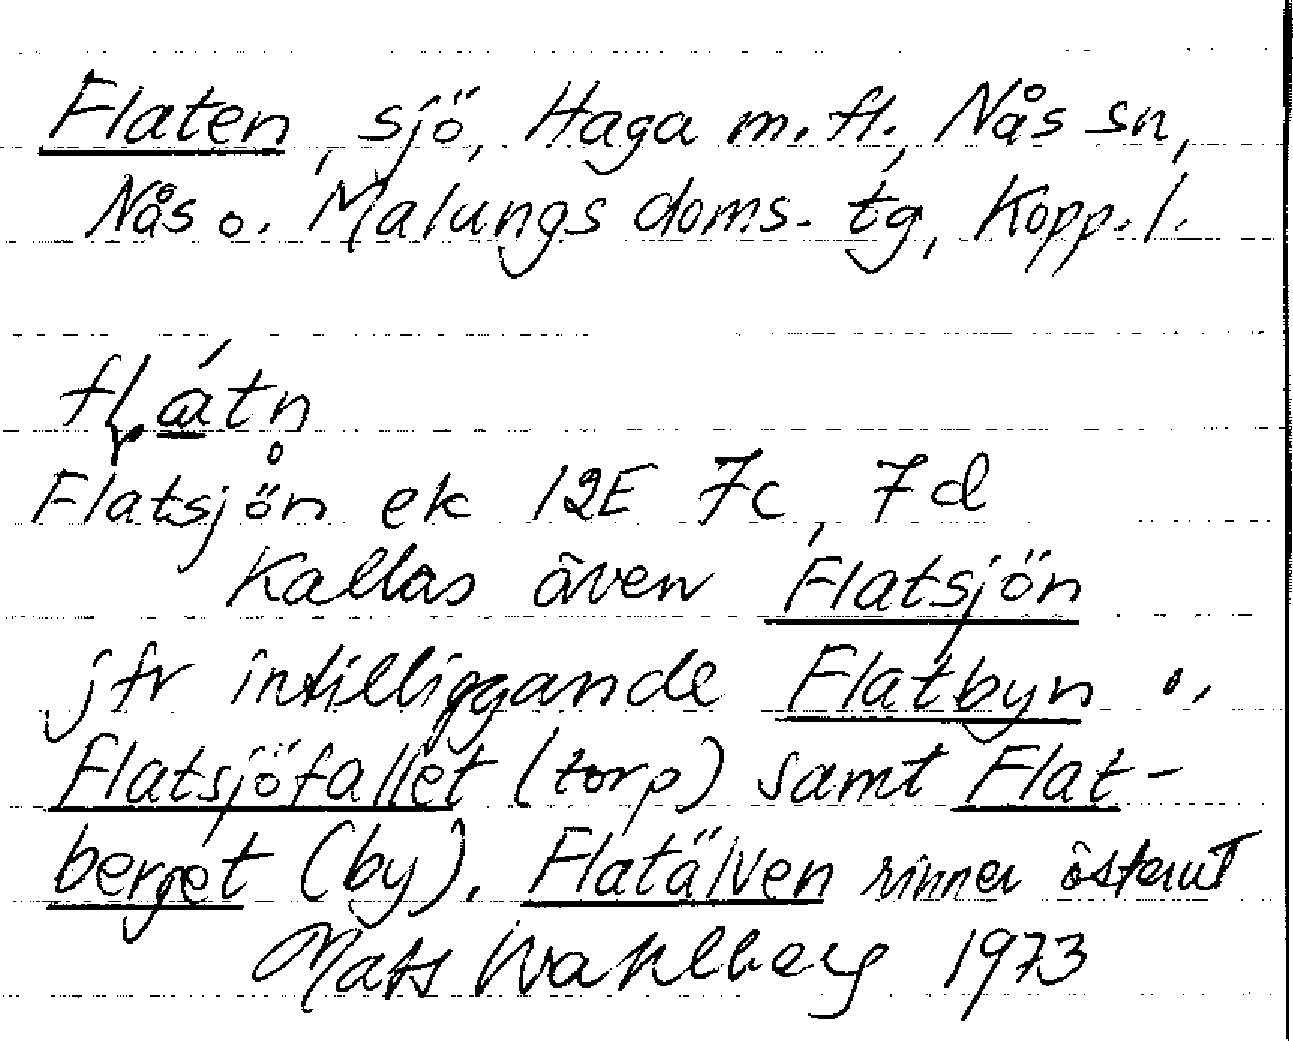 Flaten, sjö, Haga m.fl., Nås sn,
Nås o. Malungs doms. tg, Kopp.l.
flátn
Flatsjön ek 12E 7c, 7d
Kallas även Flatsjön
jfr intilliggande Flatbyn o.
Flatsjöfallet (torp) samt Flat-
berget (by). Flatälven rinner österut
Mats Wahlberg 1973